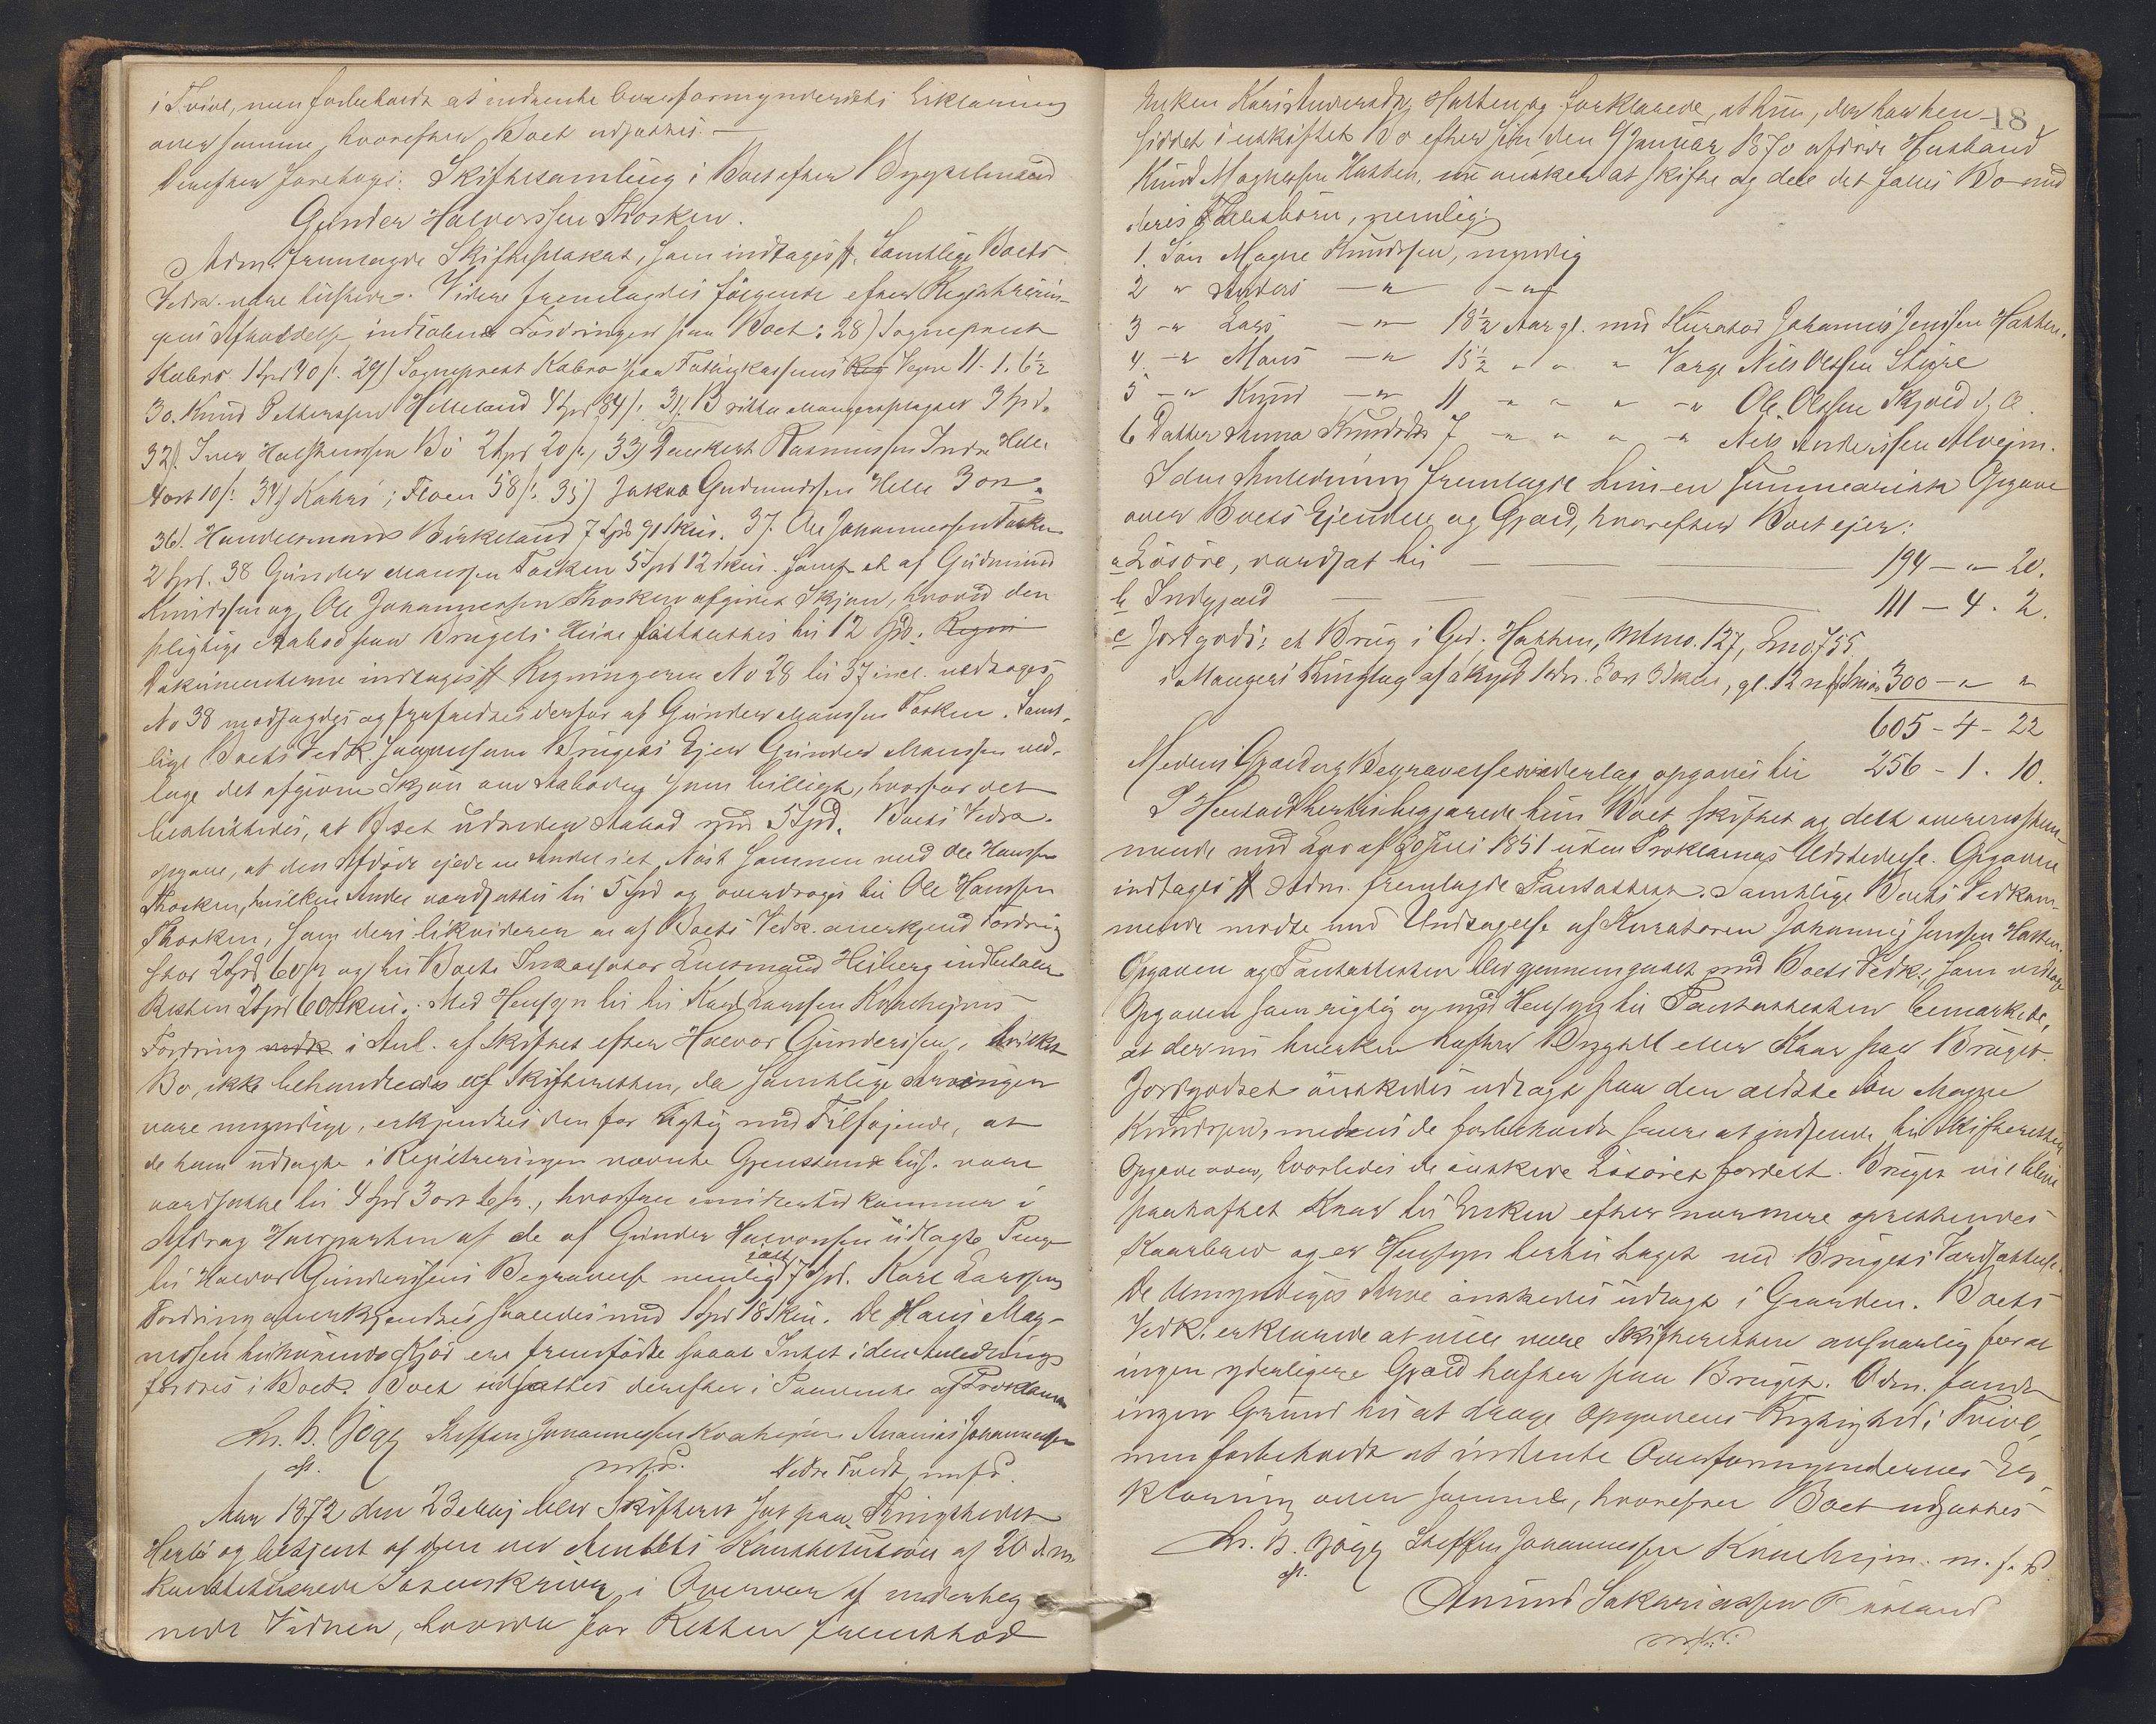 i Tvivl, men forbeholdt at indhente Overformynderiets Erklæring
over samme, hvorefter Boet udsattes. —
Derefter foretoges: Skiftesamling i Boet efter
Gunder Halvorssen Tosken.
Adm. fremlagde Skifteplakat, som indtages ff. Samtlige Boets
Vedk. vare tilstede. Videre fremlagdes følgende efter Registrerin-
gens Afholdelse indkomne Fordringer paa Boet: 28) Sogneprest
Kabro 1 Spd 40 s. 29) Sogneprest Kabro paa Fattigkassens Vegne 11. 1. 6½
30. Knud Pettersen Helleland 4 Spd 84 s. 31) Britha Mangersplagset 3 Spd.
32). Iver Halstenssen Bø 2 Spd 20 s., 33) Rasmussen Indre Helle
4 ort 10 s. 34) Kahrs i Floen 58 s. 35) Jakob Gudmundsen Helle 3 ort.
36). Handelsmand Birkeland 7 Spd 91 Skill. 37. Ole Johannessen Tosken
2 Spd. 38 Gunder Monssen Tosken 5 Spd 12 skill. samt et af Gudmund
Knudssen og Ole Johannessen Thosken afgivet Skjøn, hvorved den
pligtige Aabod paa Brugets Huse fastsattes til 12 Spd.
Dokumenterne indtages ff Regningerne No 28 til 37 incl. vedtoges
No 38 modsagdes og frafaldtes derfor af Gunder Monssen Tosken. Samt-
lige Boets Vedk. saavelsom Brugets Ejer Gunder Monssen ved-
toge det afgivne Skjøn over Aaboden som billigt, hvorfor det
besluttedes, at Boet udreder Aabod med 5 Spd. Boets Vedk.
opgave, at den Afdøde ejede en Andel i et Nøst sammen med Ole Hanssen
Thosken, hvilken Andel værdsattes til 5 Spd og overdroges til Ole Hanssen
Thosken, som deri likviderer en af Boets Vedk. anerkjend Fordring
stor 2 Spd 60 s og til Boets Inkassator Lensmand Heiberg indbetaler
Resten 2 Spd 60 Skill. Med Hensyn til Karl Larssen Kvalheims
Fordring i Anl. af Skiftet efter Halvor Gunderssen, hvilket
Bo, ikke behandledes af Skifteretten, da samtlige Arvinger
vare myndige, erkjendtes den for rigtig med Tilføiende, at
de ham udlagte i Registreringen nævnte Gjenstande vare
værdsatte til 4 Spd 3 ort 6 s., hvorhos imidlertid kommer i
Afdrag Halvparten af de af Gunder Halvorssen udlagte Penge
til Halvor Gunderssens Begravelse nemlig ialt 7 Spd. Karl Larssens
Fordring anerkjendtes saaledes med 1 Spd 18 Skill. De Hans Mag-
nessen tilhørende ere fremførte saaat Intet i den Anledning
fordres i Boet. Boet udsattes derefter i Paavente af Proklama
Chr. B. Bøgh Steffen Johannessen Kvalheim Ananias Johannessen
cst. m.f.P. Nedre Tvedt, m.f.P.
Aar 1872 den 23 Maj blev Skifteret sat paa Thingstedet
Herlø og betjent af den ved Amtets Konstitution af 20 d.m.
konstituerede Sorenskriver i Overvær af undertegn-
nede Vidner, hvorda for Retten fremstod
18
Enken Kari Andersdtr. Hatten og forklarede, at hun, der har hen-
siddet i uskiftet Bo efter sin den 9 Januar 1870 afdøde Husband
Knud Magnessen Hatten, nu ønsker at skifte og dele det fælles Bo med
deres Fællesbørn, nemlig:
1. Søn Magne Knudssen, myndig
2 " Anders — " — " —
3 — " Lars — " — 18½ Aar gl. med Kurator Johannes Jenssen Hatten.
4. — " Mons — " — 15½ " " " Værge Nils Olssen Skjøre
5 — " Knud — " — 11 " " " — " Ole Olssen Skjold
6 Datter Anna Knudsdtr 7 — " " " — " Nils Anderssen Alvejm.
I den Anledning fremlagde hun en summarisk Opgave
over Boets Ejendele og Gjæld, hvorefter Boet ejer:
a Løsøre, værdsat til — 194 — " — 20.
b Indgjæld — 111 — 4. 2.
c Jordgods: et Brug i Grd. Hatten, Mtno. 127, Lno. 755
i Mangers Thinglag af skyld 1 dr. 3 ort 3 skill, gl. 12 mk Smør 300 — " "
605 — 4 — 22
Medens Gjæld og Begravelsesvederlag opgaves til 256 — 1. 10.
I Henhold hertil begjærede hun Boet skiftet og delt overensstem-
mende med Lov af 30 Juli 1851 uden Proklamas Udstedelse. Opgaven
indtages ff Adm. fremlagde Pantattest. Samtlige Boets Vedkom-
mende mødte med Undtagelse af Kuratoren Johannes Jenssen Hatten.
Opgaven og Pantattesten blev gjennemgaaet med Boets Vedk., som vedtoge
Opgaven som rigtig og med Hensyn til Pantattesten bemærkede,
at der nu hverken hefter Bygsel eller Kaar paa Bruget.
Jordgodset ønskedes udlagt paa den ældste Søn Magne
Knudssen, medens de forbeholdt senere at indsende til Skifteretten
Opgave over, hvorledes de ønskede Løsøret fordelt. Bruget vil blive
paaheftet Kaar til Enken efter nærmere oprettendes
Kaarbrev og er Hensyn hertil taget ved Brugets Værdsættelse.
De Umyndiges Arve ønskedes udlagt i Gaarden. Boets
Vedk. erklærede at ville være Skifteretten ansvarlig for at
ingen yderligere Gjæld hefter paa Bruget. Adm. fandt
ingen Grund til at drage Opgavens Rigtighed i Tvivl,
men forbeholdt at indhente Overformyndernes Er-
klæring over samme, hvorefter Boet udsattes
Chr. B. Bøgh Steffen Johannessen Kvalhejm. m.f.P.
cst.
Amund Sakariassen
m.f.P.